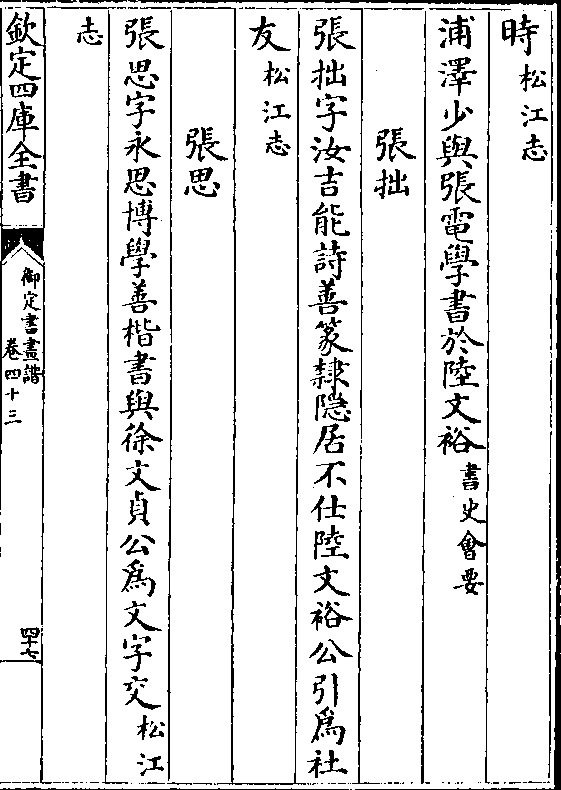 時松江志
浦澤少與張電學書於陸文裕書史會要
張拙
張拙字汝吉能詩善篆隸隠居不仕陸文裕公引爲社
友松江志
張思
張思字永思博學善楷書與徐文貞公爲文字交松江
志
欽定四庫全書
御定書畫譜
卷四十三
四十七